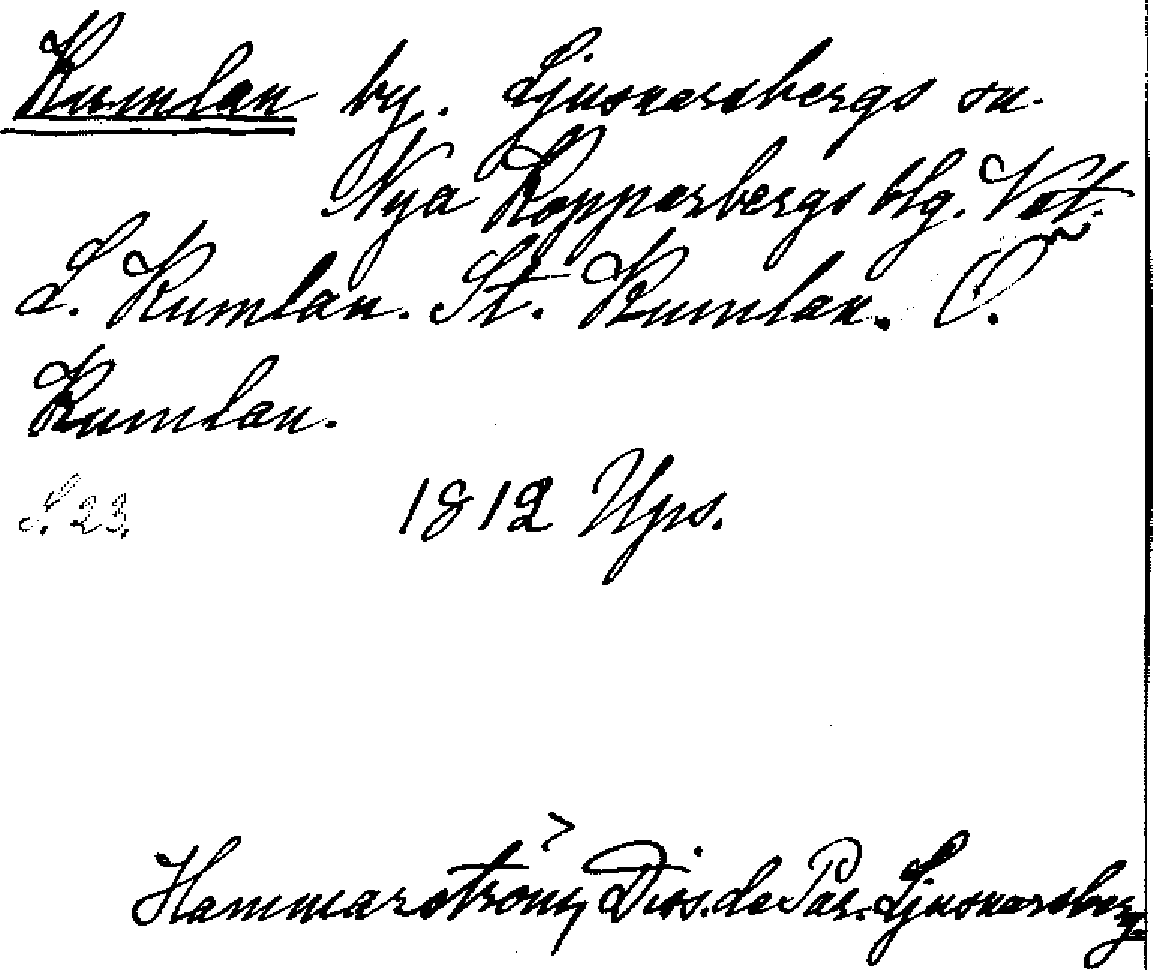 Kumlan by. Ljusnarsbergs sn.
Nya Kopparbergs blg. Vstm.
L. Kumlan. St. Kumlan. Ö.
Kumlan.
S. 23. 1812 Ups.
Hammarström, Diss. de Par. Ljusnarsberg.